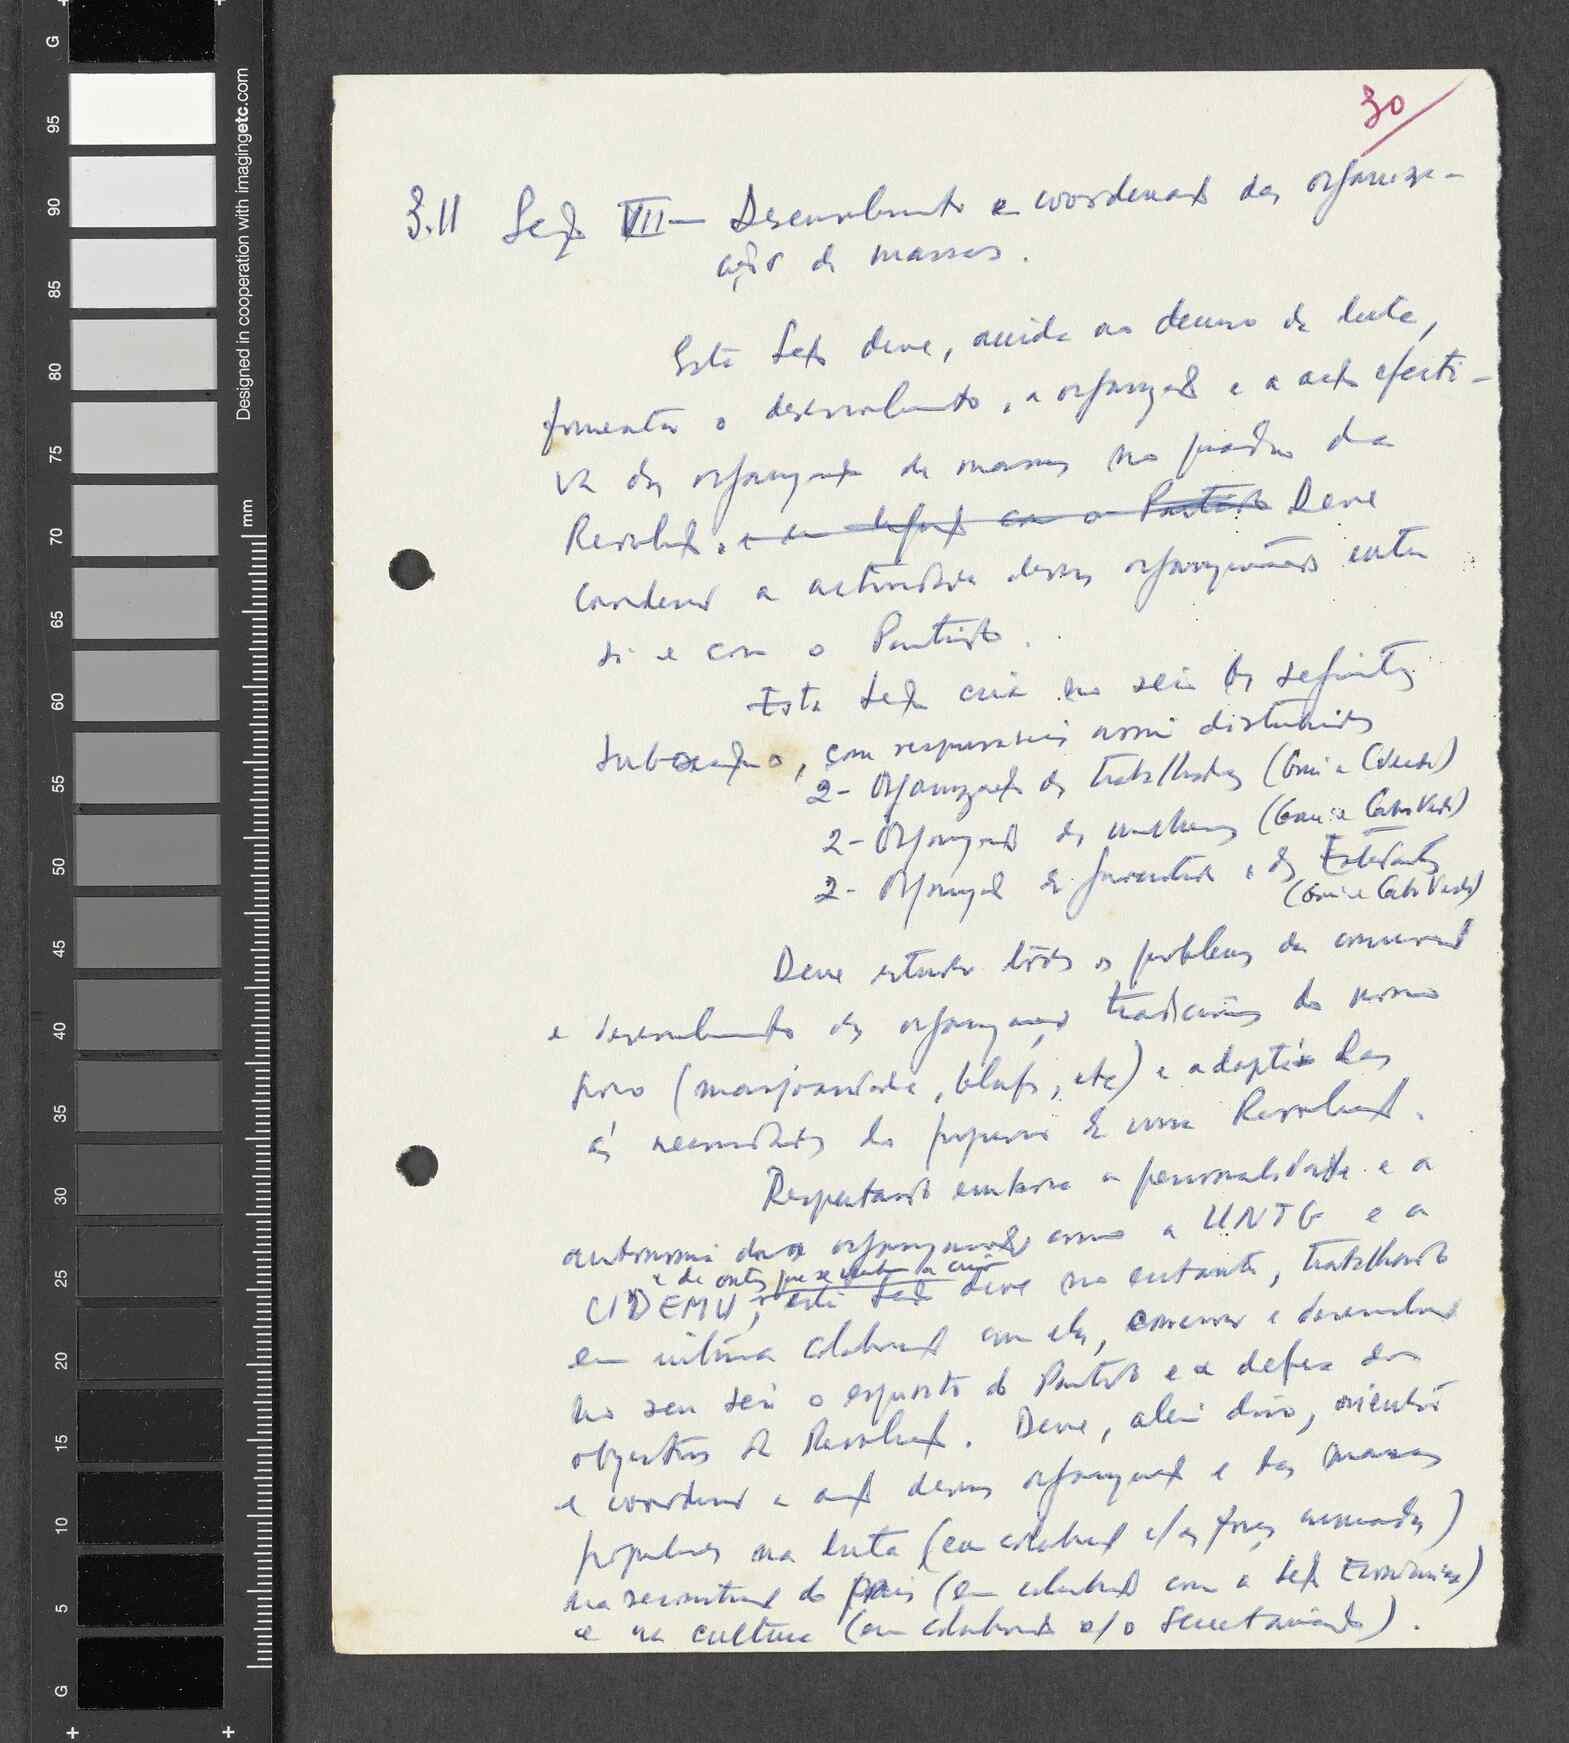 30
3.11 Secç VII — Desenvolvimento e coordenação das organiza-
ações de massas.
Esta Secç deve, ainda no decurso da luta,
fomentar o desenvolvimento, a organização e a acção efecti-
va das organizações de massas no quadro da
Revolução. Deve
coordenar a actividade dessas organizações entre
si e com o Partido.
Esta Secç cria no seio as seguintes
Subsecções, com responsáveis assim distribuidos
2- Organização dos trabalhadores (Guiné e CVerde)
2- Organização das mulheres (Guiné e Cabo Verde)
2- Organização da Juventude e dos Estudantes
(Guiné e Cabo Verde)
Deve estudar todos os problemas da conservação
e desenvolvimento das organizações tradicionais do nosso
povo (manjuandade, blufo, etc) e adaptá-las
às necessidades do progresso e da Revolução.
Respeitando embora a personalidade e a
autonomia das organizações como a UNTG e a
e de outras que se venham a criar
CIDEMU, esta Secç deve no entanto, trabalhando
em íntima colaboração com elas, conservar e desenvolver
no seu seio o espírito do Partido e a defesa dos
objectivos da Revolução. Deve, além disso, orientar
e coordenar a acção dessas organizações e das massas
populares na luta (em colaboração c/ as forças armadas)
na reconstrução do País (em colaboração com a Secç Económica)
e na cultura (em colaboração c/ o Secretariado).
G
95
90
85
80
75
70
65
60
55
50
45
40
35
30
25
20
15
10
5
G
mm
Designed in cooperation with imagingetc.com